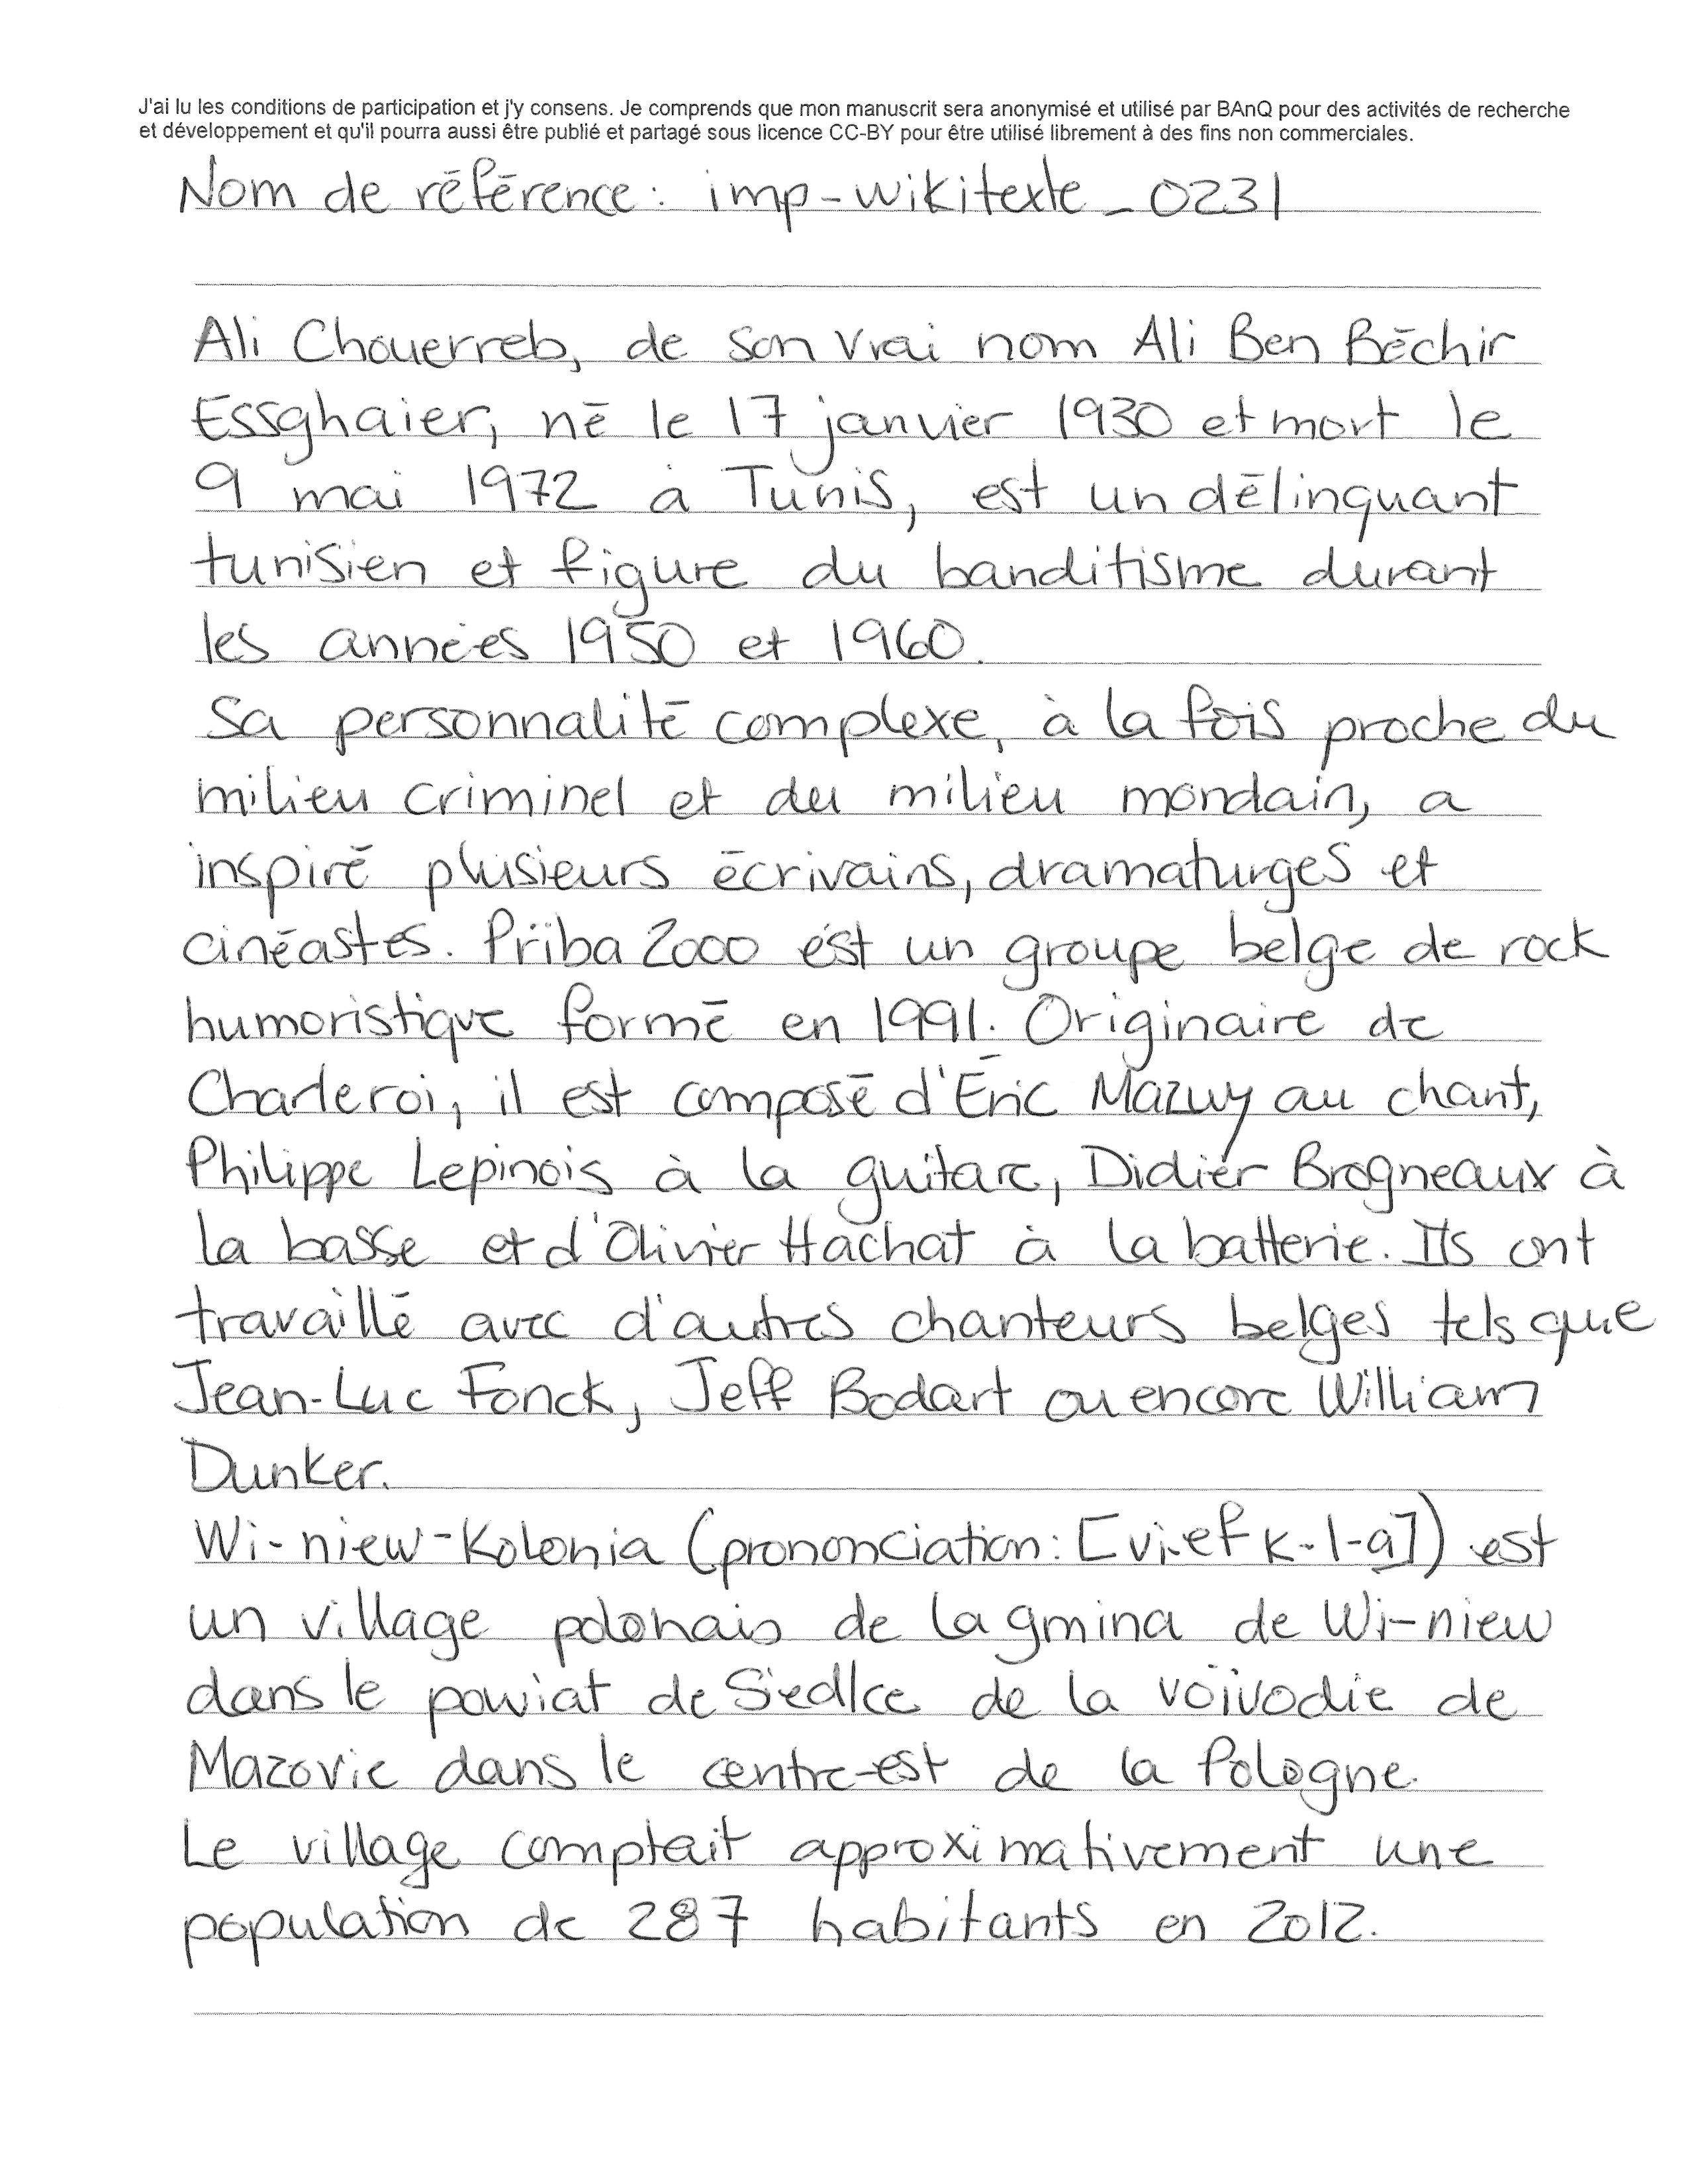 J'ai lu les conditions de participation et j'y consens. Je comprends que mon manuscrit sera anonymisé et utilisé par BAnQ pour des activités de recherche
et développement et qu'il pourra aussi être publié et partagé sous licence CC-BY pour être utilisé librement à des fins non commerciales.
Nom de référence : imp-wikitexte_0231
Ali Chouerreb, de son vrai nom Ali Ben Béchir
Essghaier, né le 17 janvier 1930 et mort le
9 mai 1972 à Tunis, est un délinquant
tunisien et figure du banditisme durant
les années 1950 et 1960.
Sa personnalité complexe, à la fois proche du
milieu criminel et du milieu mondain, a
inspiré plusieurs écrivains, dramaturges et
cinéastes. Priba 2000 est un groupe belge de rock
humoristique formé en 1991. Originaire de
Charleroi, il est composé d'Éric Mazuy au chant,
Philippe Lepinois à la guitare, Didier Brogneaux à
la basse et d'Olivier Hachat à la batterie. Ils ont
travaillé avec d'autres chanteurs belges tels que
Jean-Luc Fonck, Jeff Bodart ou encore William
Dunker.
Wi-niew-Kolonia (prononciation : [vi-ef k-l-a]) est
un village polonais de la gmina de Wi-niew
dans le powiat de Siedlce de la voïvodie de
Mazovie dans le centre-est de la Pologne.
Le village comptait approximativement une
population de 287 habitants en 2012.